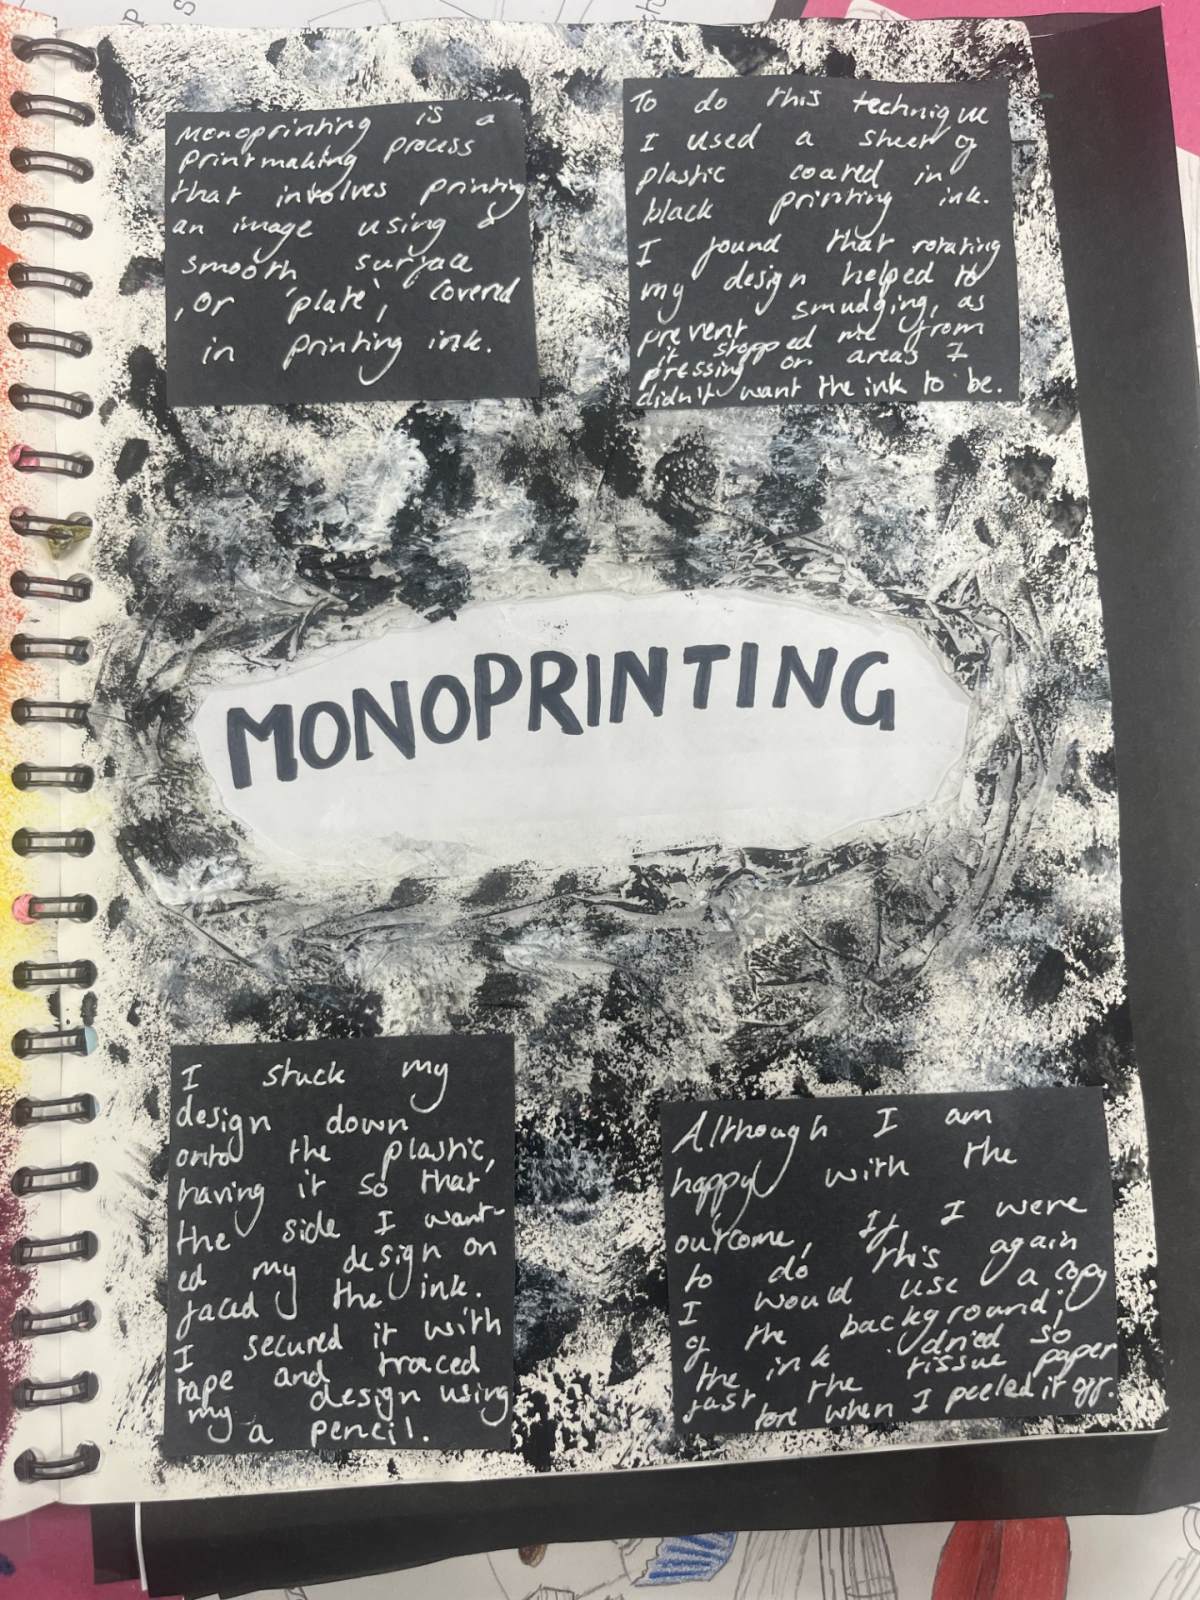 Monoprinting is a
printmaking process
that involves printing
an image using a
smooth surface
, or 'plate', covered
in printing ink.
To do this technique
I used a sheet of
plastic coated in
black printing ink.
I found that rotating
my design helped to
prevent smudging, as
it stopped me from
pressing on areas I
didn't want the ink to be.
MONOPRINTING
I stuck my
design down
onto the plastic,
having it so that
the side I want-
ed my design on
faced the ink.
I secured it with
tape and traced
my design using
a pencil.
Although I am
happy with the
outcome, If I were
to do this again
I would use a copy
of the background;
the ink dried so
fast the tissue paper
tore when I peeled it off.